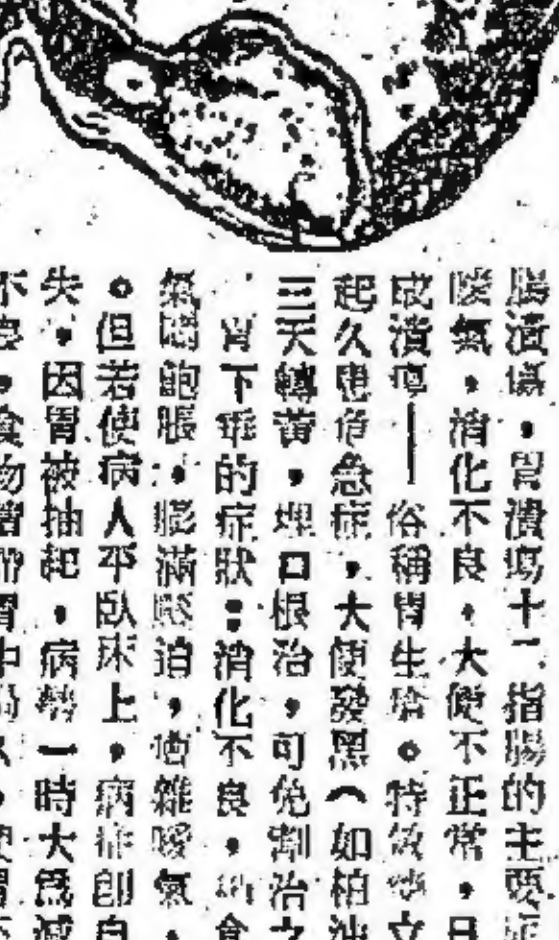 腸潰瘍，胃潰瘍十二指腸的主要症
噯氣，消化不良，大便不正常，日
成潰瘍——俗稱胃生瘡。特效立
起久患危急症，大便發黑（如柏油
三天轉黃，埋口根治，可免割治之
胃下垂的症狀：消化不良，食
氣喘飽脹，膨滿壓迫，嘈雜噯氣，
。但若使病人平臥床上，病症即自
失，因胃被抽起，病勢一時大為減
食物胃中